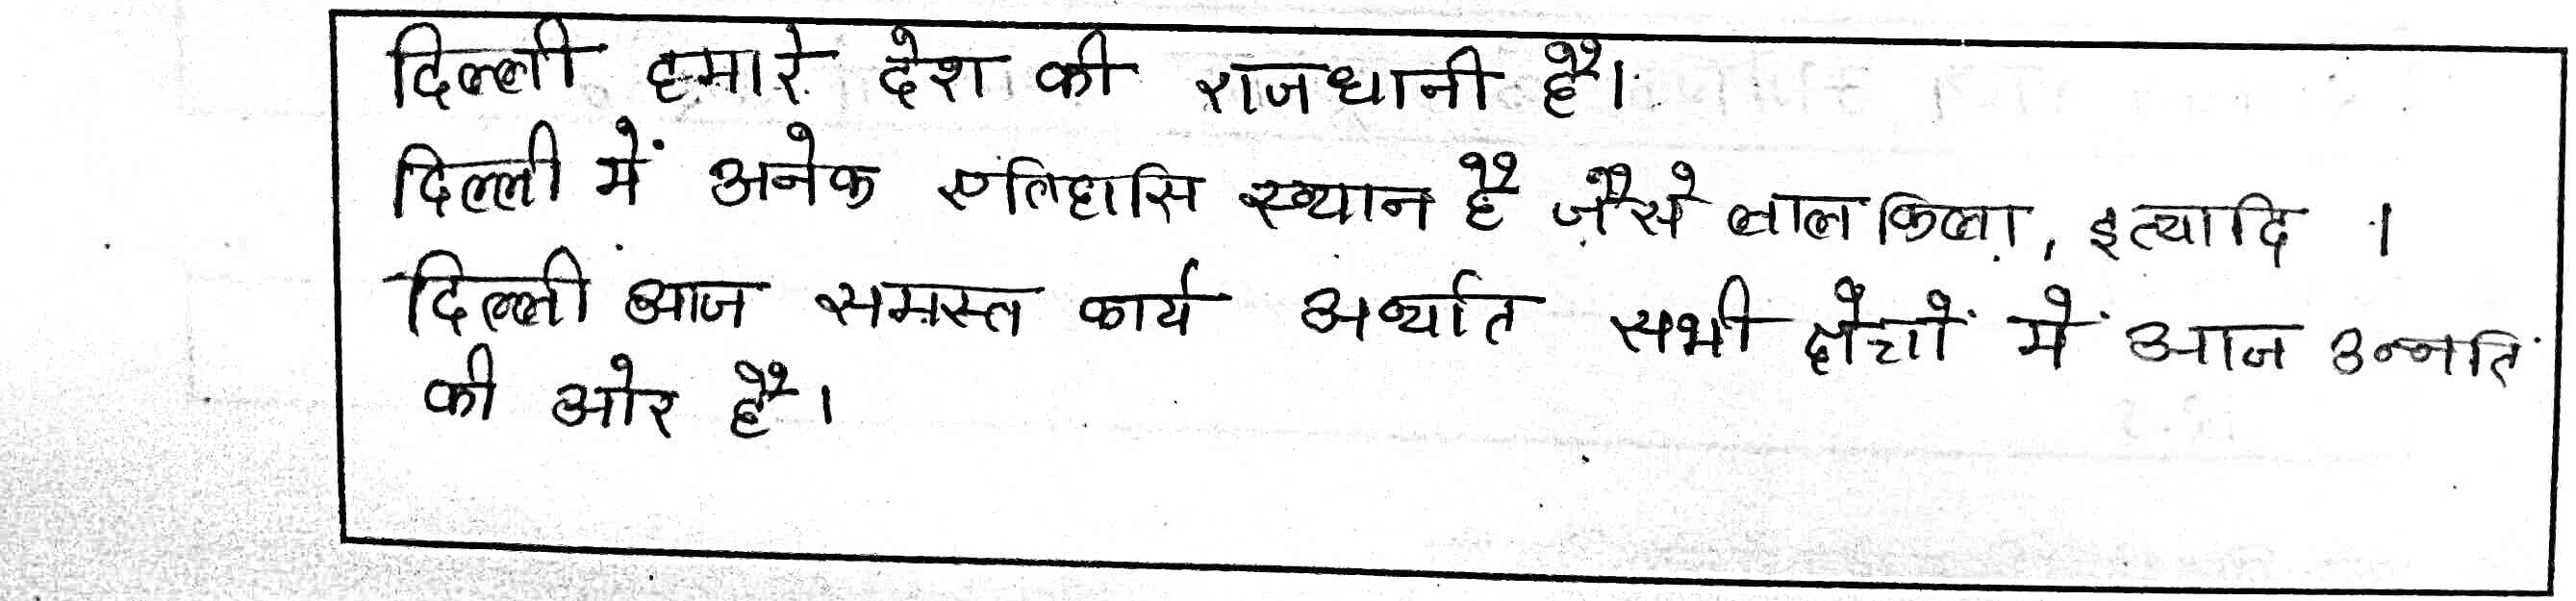 दिल्ली हमारे देश की राजधानी है।
दिल्ली में अनेक एतिहासि स्थान है जैसे लाल किला, इत्यादि ।
दिल्ली आज समस्त कार्य अर्थात सभी क्षेत्रों में आज उन्नति
की ओर है।